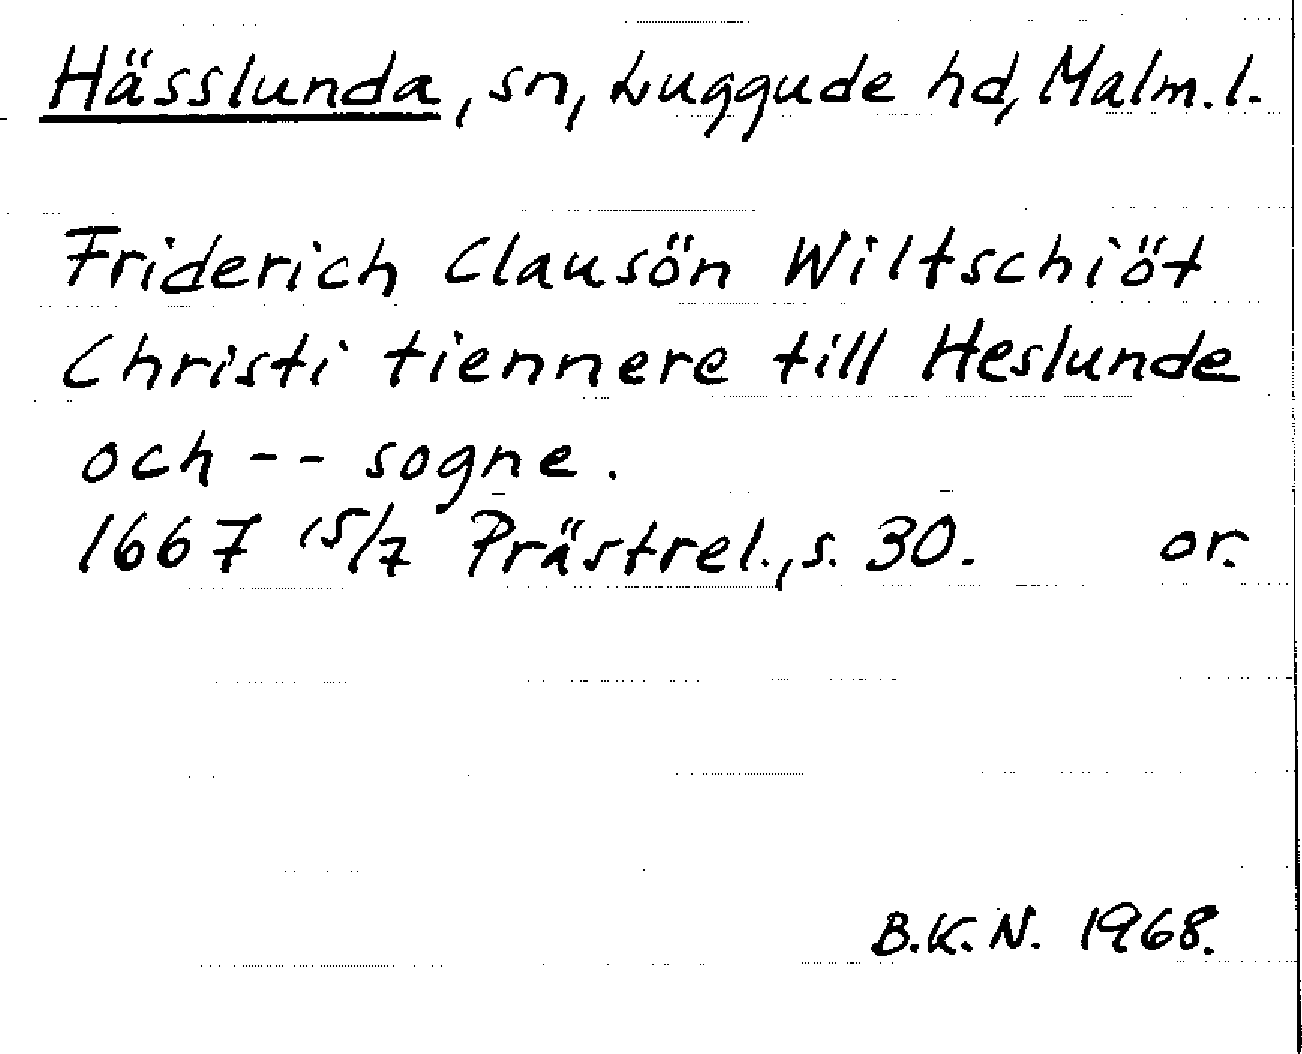 Hässlunda, sn, Luggude hd, Malm. l.
Friderich Clausön Wiltschiöt
Christi tiennere till Heslunde
och -- sogne.
1667 15/7 Prästrel., s. 30. or.
B.K.N. 1968.